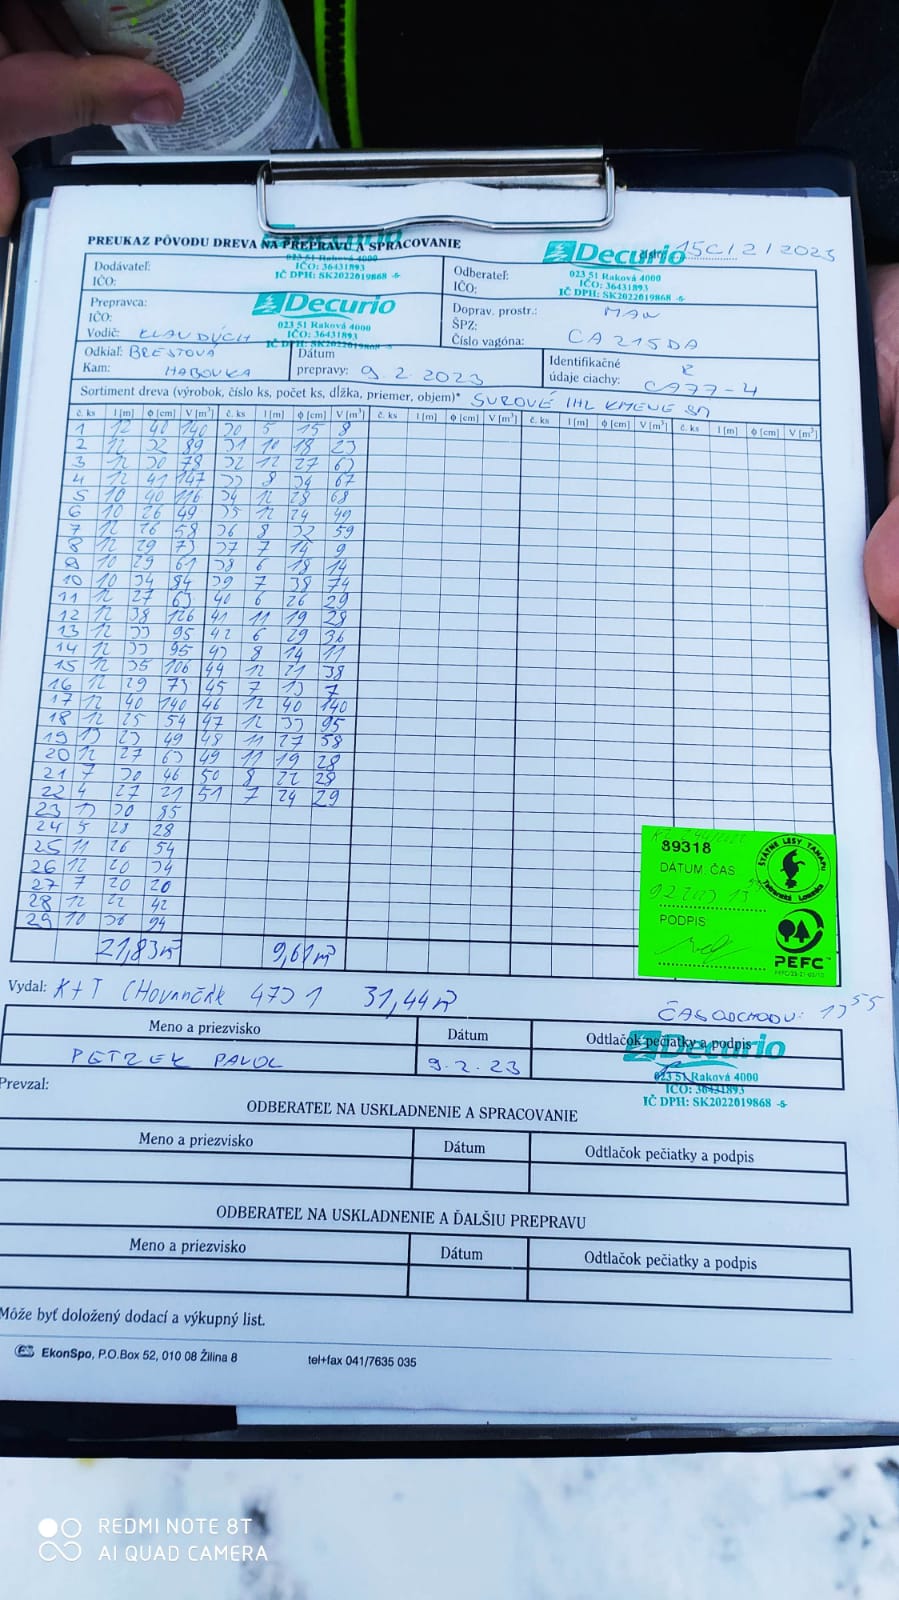 PREUKAZ PÔVODU DREVA NA PREPRAVU A SPRACOVANIE
Decurio
15C/2/2023
023 51 Raková 4000
IČO: 36431893
IČ DPH: SK2022019868 -5-
Dodávateľ:
IČO:
Odberateľ:
IČO:
023 51 Raková 4000
IČO: 36431893
IČ DPH: SK2022019868 -5-
Prepravca:
IČO:
Vodič: KLAUDÚCH
Decurio
023 51 Raková 4000
IČO: 36431893
IČ DPH: SK2022019868 -5-
Doprav. prostr.: MAN
ŠPZ:
Číslo vagóna: CA 215DA
Odkiaľ: BRESTOVÁ
Kam: HABOVKA
Dátum
prepravy: 9.2.2023
Identifikačné R
údaje ciachy: CA77-4
Sortiment dreva (výrobok, číslo ks, počet ks, dĺžka, priemer, objem)* SUROVÉ IHL KMENE SM
č. ks l [m] ϕ [cm] V [m³] č. ks l [m] ϕ [cm] V [m³] č. ks l [m] ϕ [cm] V [m³] č. ks l [m] ϕ [cm] V [m³] č. ks l [m] ϕ [cm] V [m³]
1 12 42 140 30 5 15 8
2 12 32 89 31 10 18 23
3 12 30 78 32 12 27 63
4 12 41 147 33 8 34 67
5 10 40 116 34 12 28 68
6 10 26 49 35 12 24 49
7 12 26 58 36 8 32 59
8 12 29 73 37 7 14 9
9 10 29 61 38 6 18 14
10 10 34 84 39 7 38 74
11 12 27 63 40 6 26 29
12 12 38 126 41 11 19 28
13 12 33 95 42 6 29 36
14 12 33 95 43 8 14 11
15 12 35 106 44 12 21 38
16 12 29 73 45 7 13 7
17 12 40 140 46 12 40 140
18 12 25 54 47 12 33 95
19 13 23 49 48 11 27 58
20 12 27 63 49 11 19 28
21 7 30 46 50 8 22 28
22 4 27 21 51 7 24 29
23 13 30 85
24 5 28 28
25 11 26 54
26 12 20 34
27 7 20 20
28 12 22 42
29 10 36 94
21,83m³ 9,61m³
89318
DÁTUM, ČAS
PODPIS
ŠTÁTNE LESY TANAPU
Tatranská Lomnica
PEFC™
Vydal: K+T CHOVANČÁK 4731 31,44m³
ČAS ODCHODU: 13 55
Meno a priezvisko Dátum Odtlačok pečiatky a podpis
PETREK PAVOL 9.2.23
Decurio
023 51 Raková 4000
IČO: 36431893
IČ DPH: SK2022019868 -5-
Prevzal:
ODBERATEĽ NA USKLADNENIE A SPRACOVANIE
Meno a priezvisko Dátum Odtlačok pečiatky a podpis
ODBERATEĽ NA USKLADNENIE A ĎALŠIU PREPRAVU
Meno a priezvisko Dátum Odtlačok pečiatky a podpis
Môže byť doložený dodací a výkupný list.
EkonSpo, P.O.Box 52, 010 08 Žilina 8 tel+fax 041/7635 035
REDMI NOTE 8T
AI QUAD CAMERA